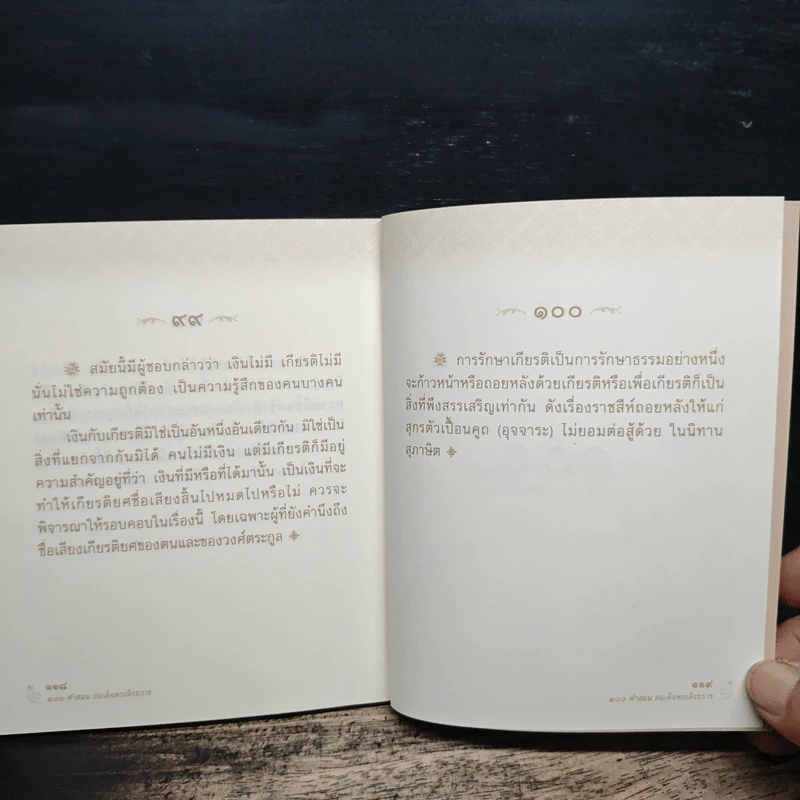 ๙๙
สมัยนี้มีผู้ชอบกล่าวว่า เงินไม่มี เกียรติไม่มี
นั่นไม่ใช่ความถูกต้อง เป็นความรู้สึกของคนบางคน
เท่านั้น
เงินกับเกียรติมิใช่เป็นอันหนึ่งอันเดียวกัน มิใช่เป็น
สิ่งที่แยกจากกันมิได้ คนไม่มีเงิน แต่มีเกียรติก็มีอยู่
ความสำคัญอยู่ที่ว่า เงินที่มีหรือที่ได้มานั้น เป็นเงินที่จะ
ทำให้เกียรติยศชื่อเสียงสิ้นไปหมดไปหรือไม่ ควรจะ
พิจารณาให้รอบคอบในเรื่องนี้ โดยเฉพาะผู้ที่ยังคำนึงถึง
ชื่อเสียงเกียรติยศของตนและของวงศ์ตระกูล
๑๑๘
๑๐๐ คำสอน สมเด็จพระสังฆราช
๑๐๐
การรักษาเกียรติเป็นการรักษาธรรมอย่างหนึ่ง
จะก้าวหน้าหรือถอยหลังด้วยเกียรติหรือเพื่อเกียรติก็เป็น
สิ่งที่พึงสรรเสริญเท่ากัน ดังเรื่องราชสีห์ถอยหลังให้แก่
สุกรตัวเปื้อนคูถ (อุจจาระ) ไม่ยอมต่อสู้ด้วย ในนิทาน
สุภาษิต
๑๑๙
๑๐๐ คำสอน สมเด็จพระสังฆราช